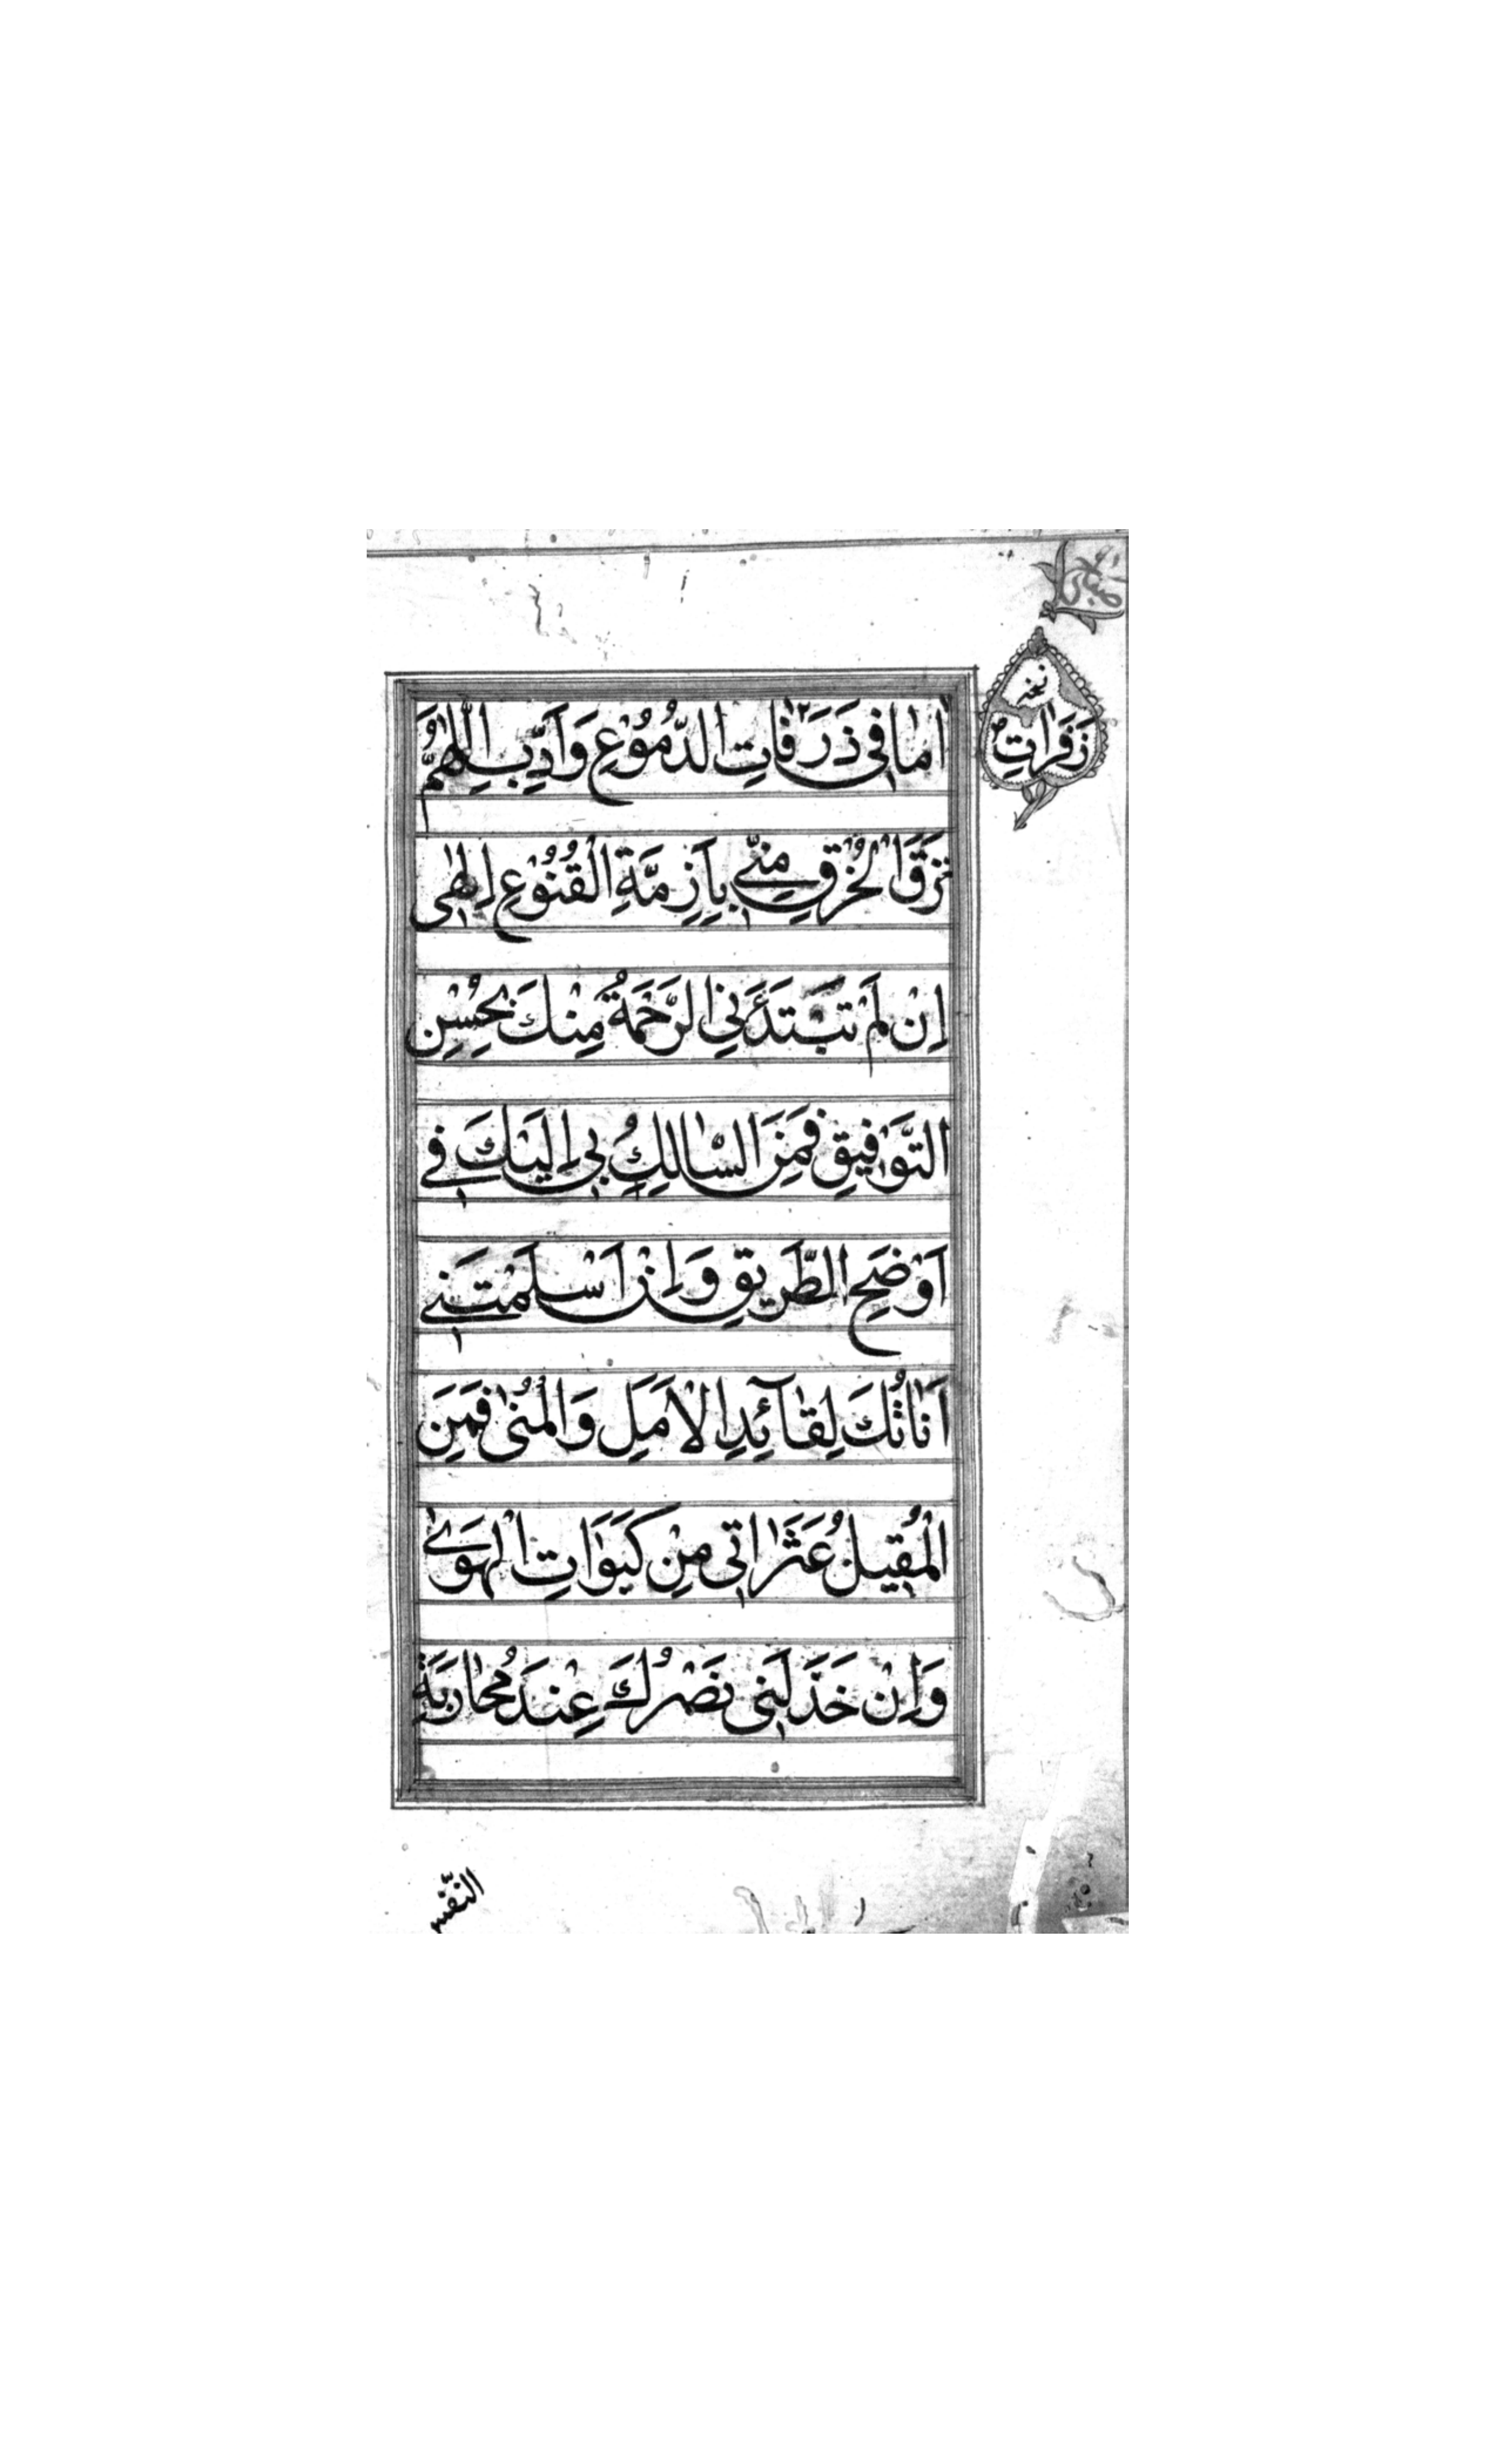 اٰماٰقي ذَرَفاٰتِ الدُّمُوْعِ وَاَدِّبِ اللّٰهُمَّ
نَزَقَ الْخُرْقِ مِنّي بِاَزِمَّةِ الْقُنُوْعِ اِلٰهى
اِنْ لَمْ تَبْتَدَئَنِى الرَّحْمَةُ مِنْكَ بِحُسْنِ
التَّوْفيقِ فَمَنِ السّٰالِكُ بى اِلَيْكَ في
اَوْضَحِ الطَّريقِ وَاِنْ اَسْلَمَتْنى
اَنٰاتُكَ لِقٰآئِدِ الْاَمَلِ وَالْمُنٰى فَمَنِ
الْمُقيلُ عَثَرٰاتى مِنْ كَبَوَاتِ الْهَوىٰ
وَاِنْ خَذَلَنى نَصْرُكَ عِنْدَ مُحٰارَبَةِ
نخه
زَفَرٰاتِ
النَّفْسِ